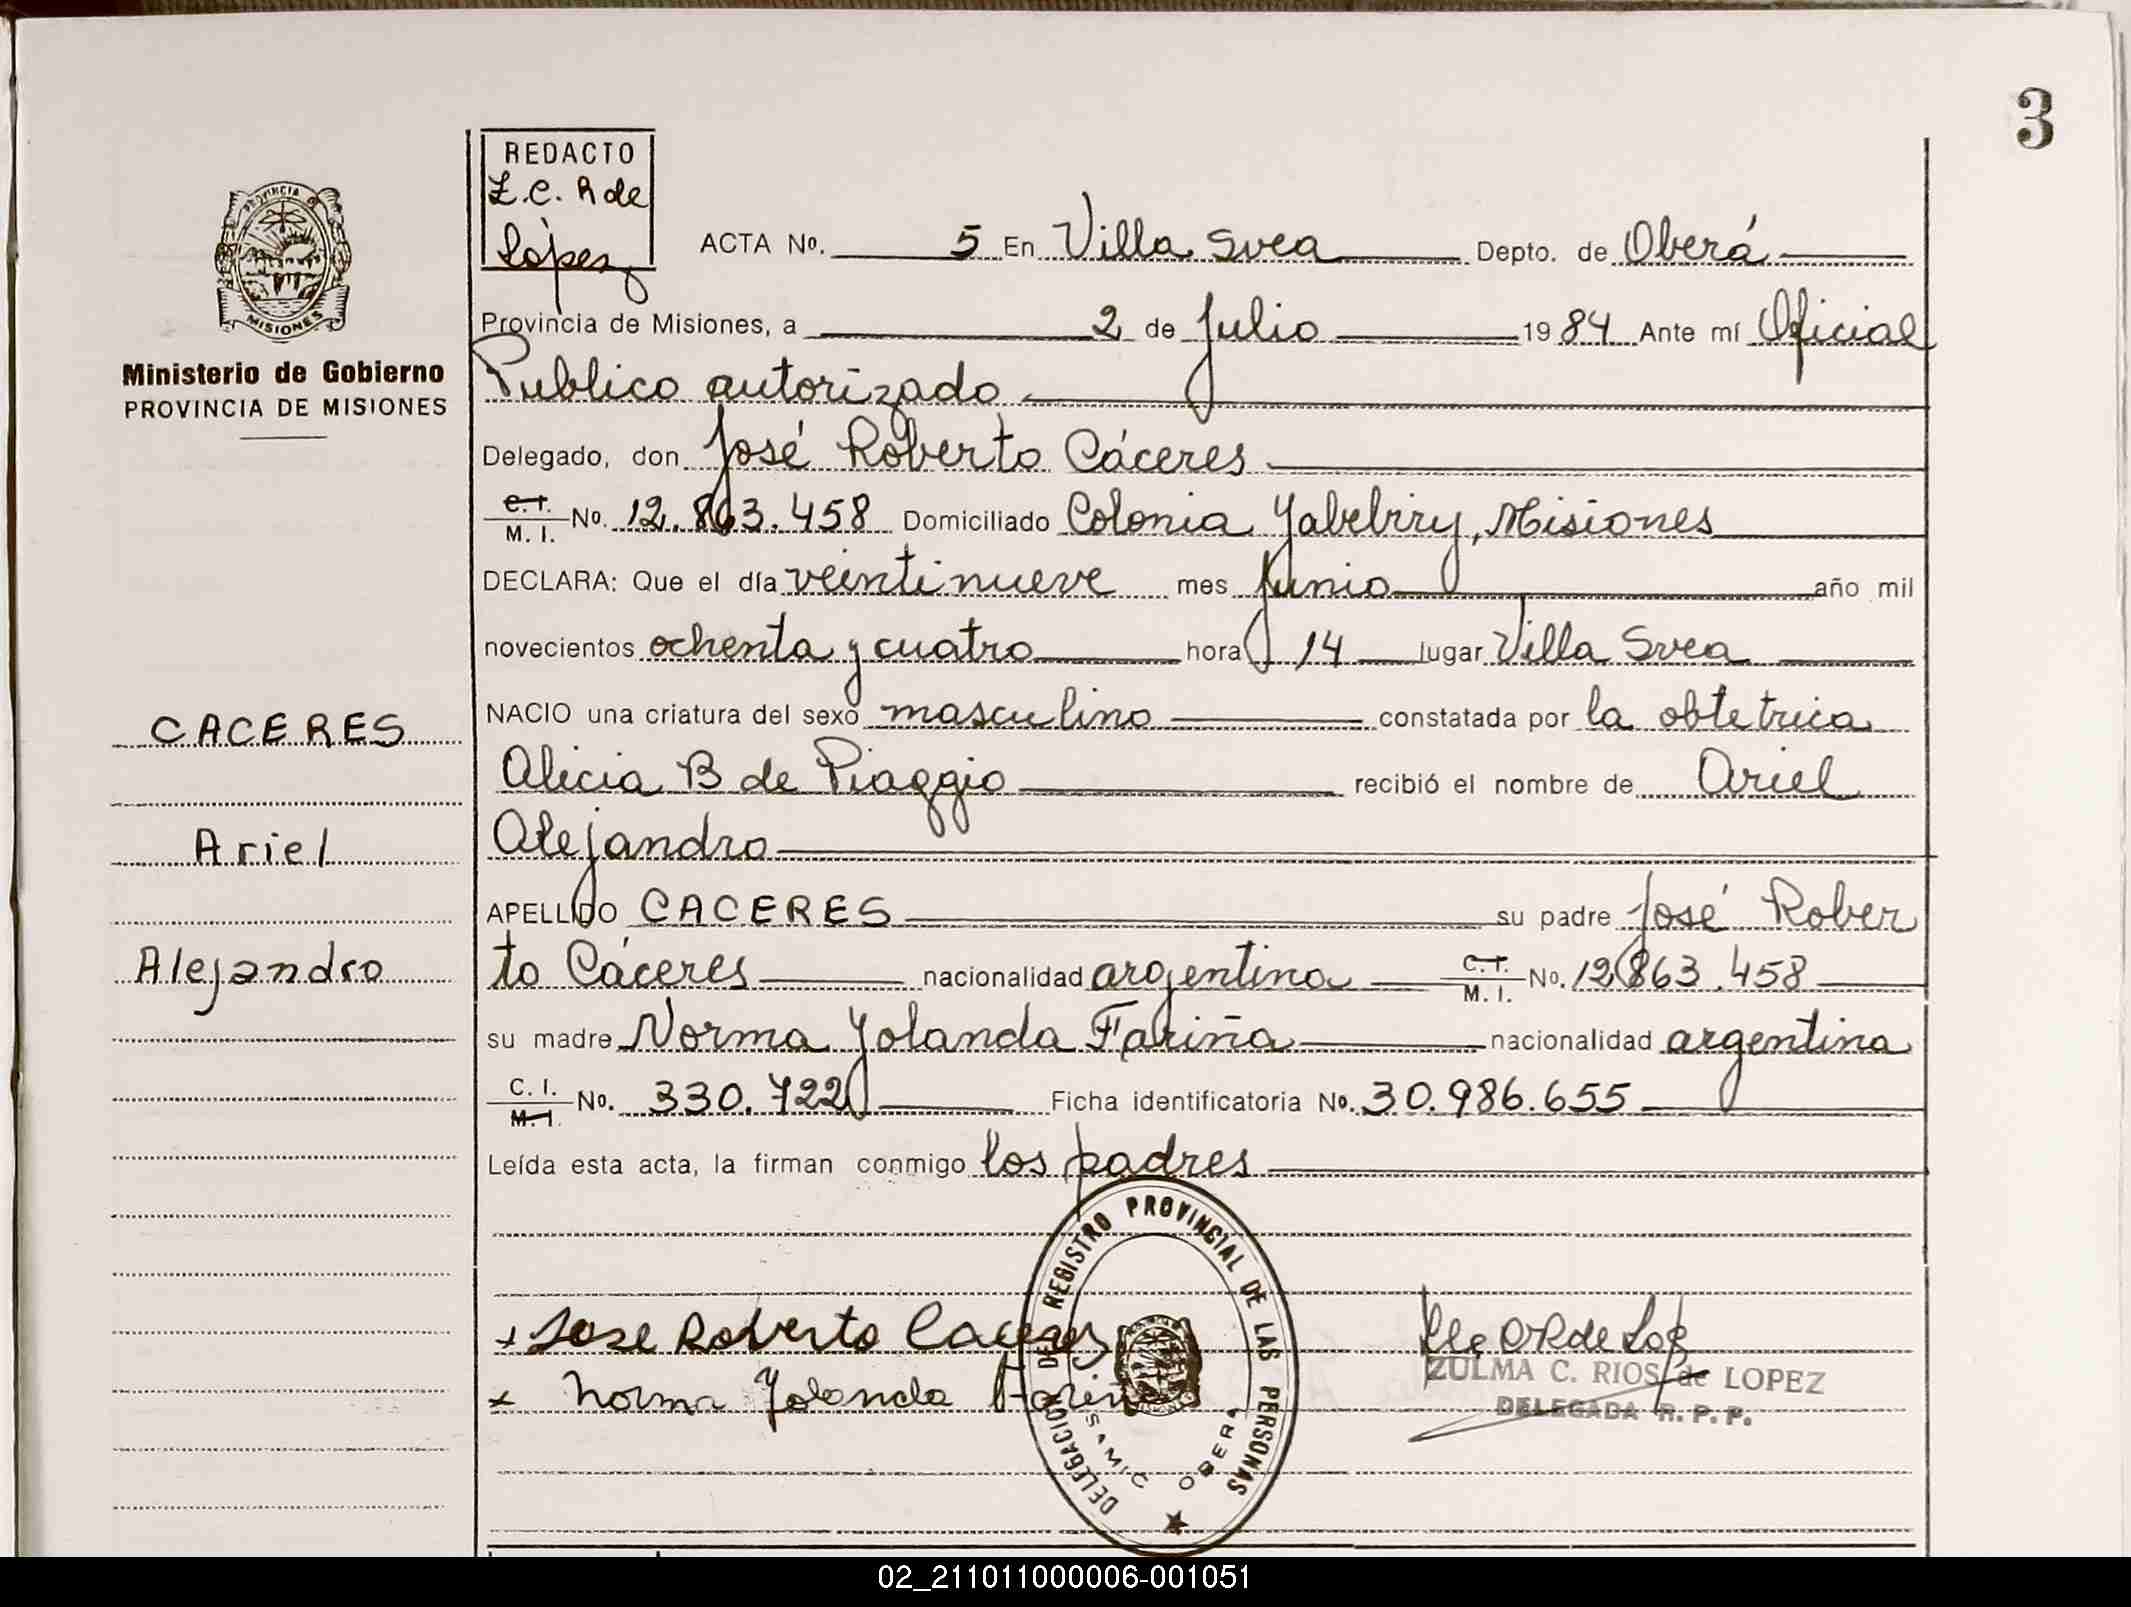 3
REDACTO
Z.C. R de
López
PROVINCIA DE
MISIONES
Ministerio de Gobierno
PROVINCIA DE MISIONES
CACERES
Ariel
Alejandro
ACTA Nº. 5 En Villa Svea Depto. de Oberá
Provincia de Misiones, a 2 de Julio 1984 Ante mí Oficial
Publico autorizado
Delegado, don José Roberto Cáceres
C.I. M.I. Nº. 12.863.458 Domiciliado Colonia Yabebiry, Misiones
DECLARA: Que el día veintinueve mes Junio año mil
novecientos ochenta y cuatro hora 14 lugar Villa Svea
NACIO una criatura del sexo masculino constatada por la obtetrica
Alicia B de Piaggio recibió el nombre de Ariel
Alejandro
APELLIDO CACERES su padre José Rober
to Cáceres nacionalidad argentina C.I. M.I. Nº. 12.863.458
su madre Norma Yolanda Fariña nacionalidad argentina
C.I. M.I. Nº. 330.722 Ficha identificatoria Nº. 30.986.655
Leída esta acta, la firman conmigo los padres
+ Jose Roberto Caceres
+ Norma Yolanda Fariña
DELEGACION DEL REGISTRO PROVINCIAL DE LAS PERSONAS
SAMIC OBERA
ZULMA C. RIOS de LOPEZ
DELEGADA R. P. P.
02_211011000006-001051